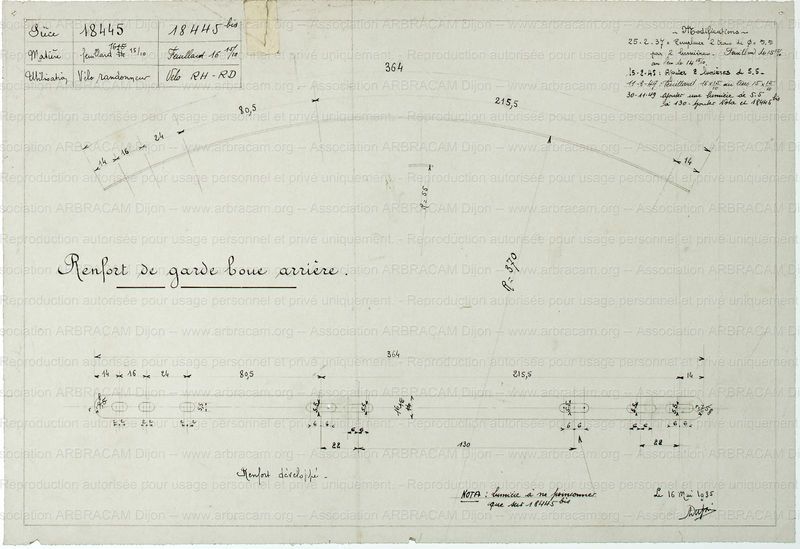 Pièce 18445 18445 bis
Matière feuillard 15/10 Feuillard 16 15/10
Utilisation Vélo randonneur Vélo RH - RD
- Modifications -
25-2-37 = Remplacer 2 trous de Ø = 5,5
par 2 lumières. Feuillard 15/10
au lieu de 14
- Ajouter 2 lumières de 5,5 -
Feuillard au lieu
30-11-49 ajouter une lumière de 5.5
à 130 - ajouter Nota et 18445 bis
364
80,5
215,5
24
16
14
14
R = 55
R = 370
Renfort de garde boue arrière.
364
14 16 24 80,5 215,5 14
6 6 6 6
22 130 22
Renfort développé -
NOTA : lumière à ne poinçonner
que sur 18445 bis
Le 16 Mai 1935
Reproduction autorisée pour usage personnel et privé uniquement. - Association ARBRACAM Dijon – www.arbracam.org